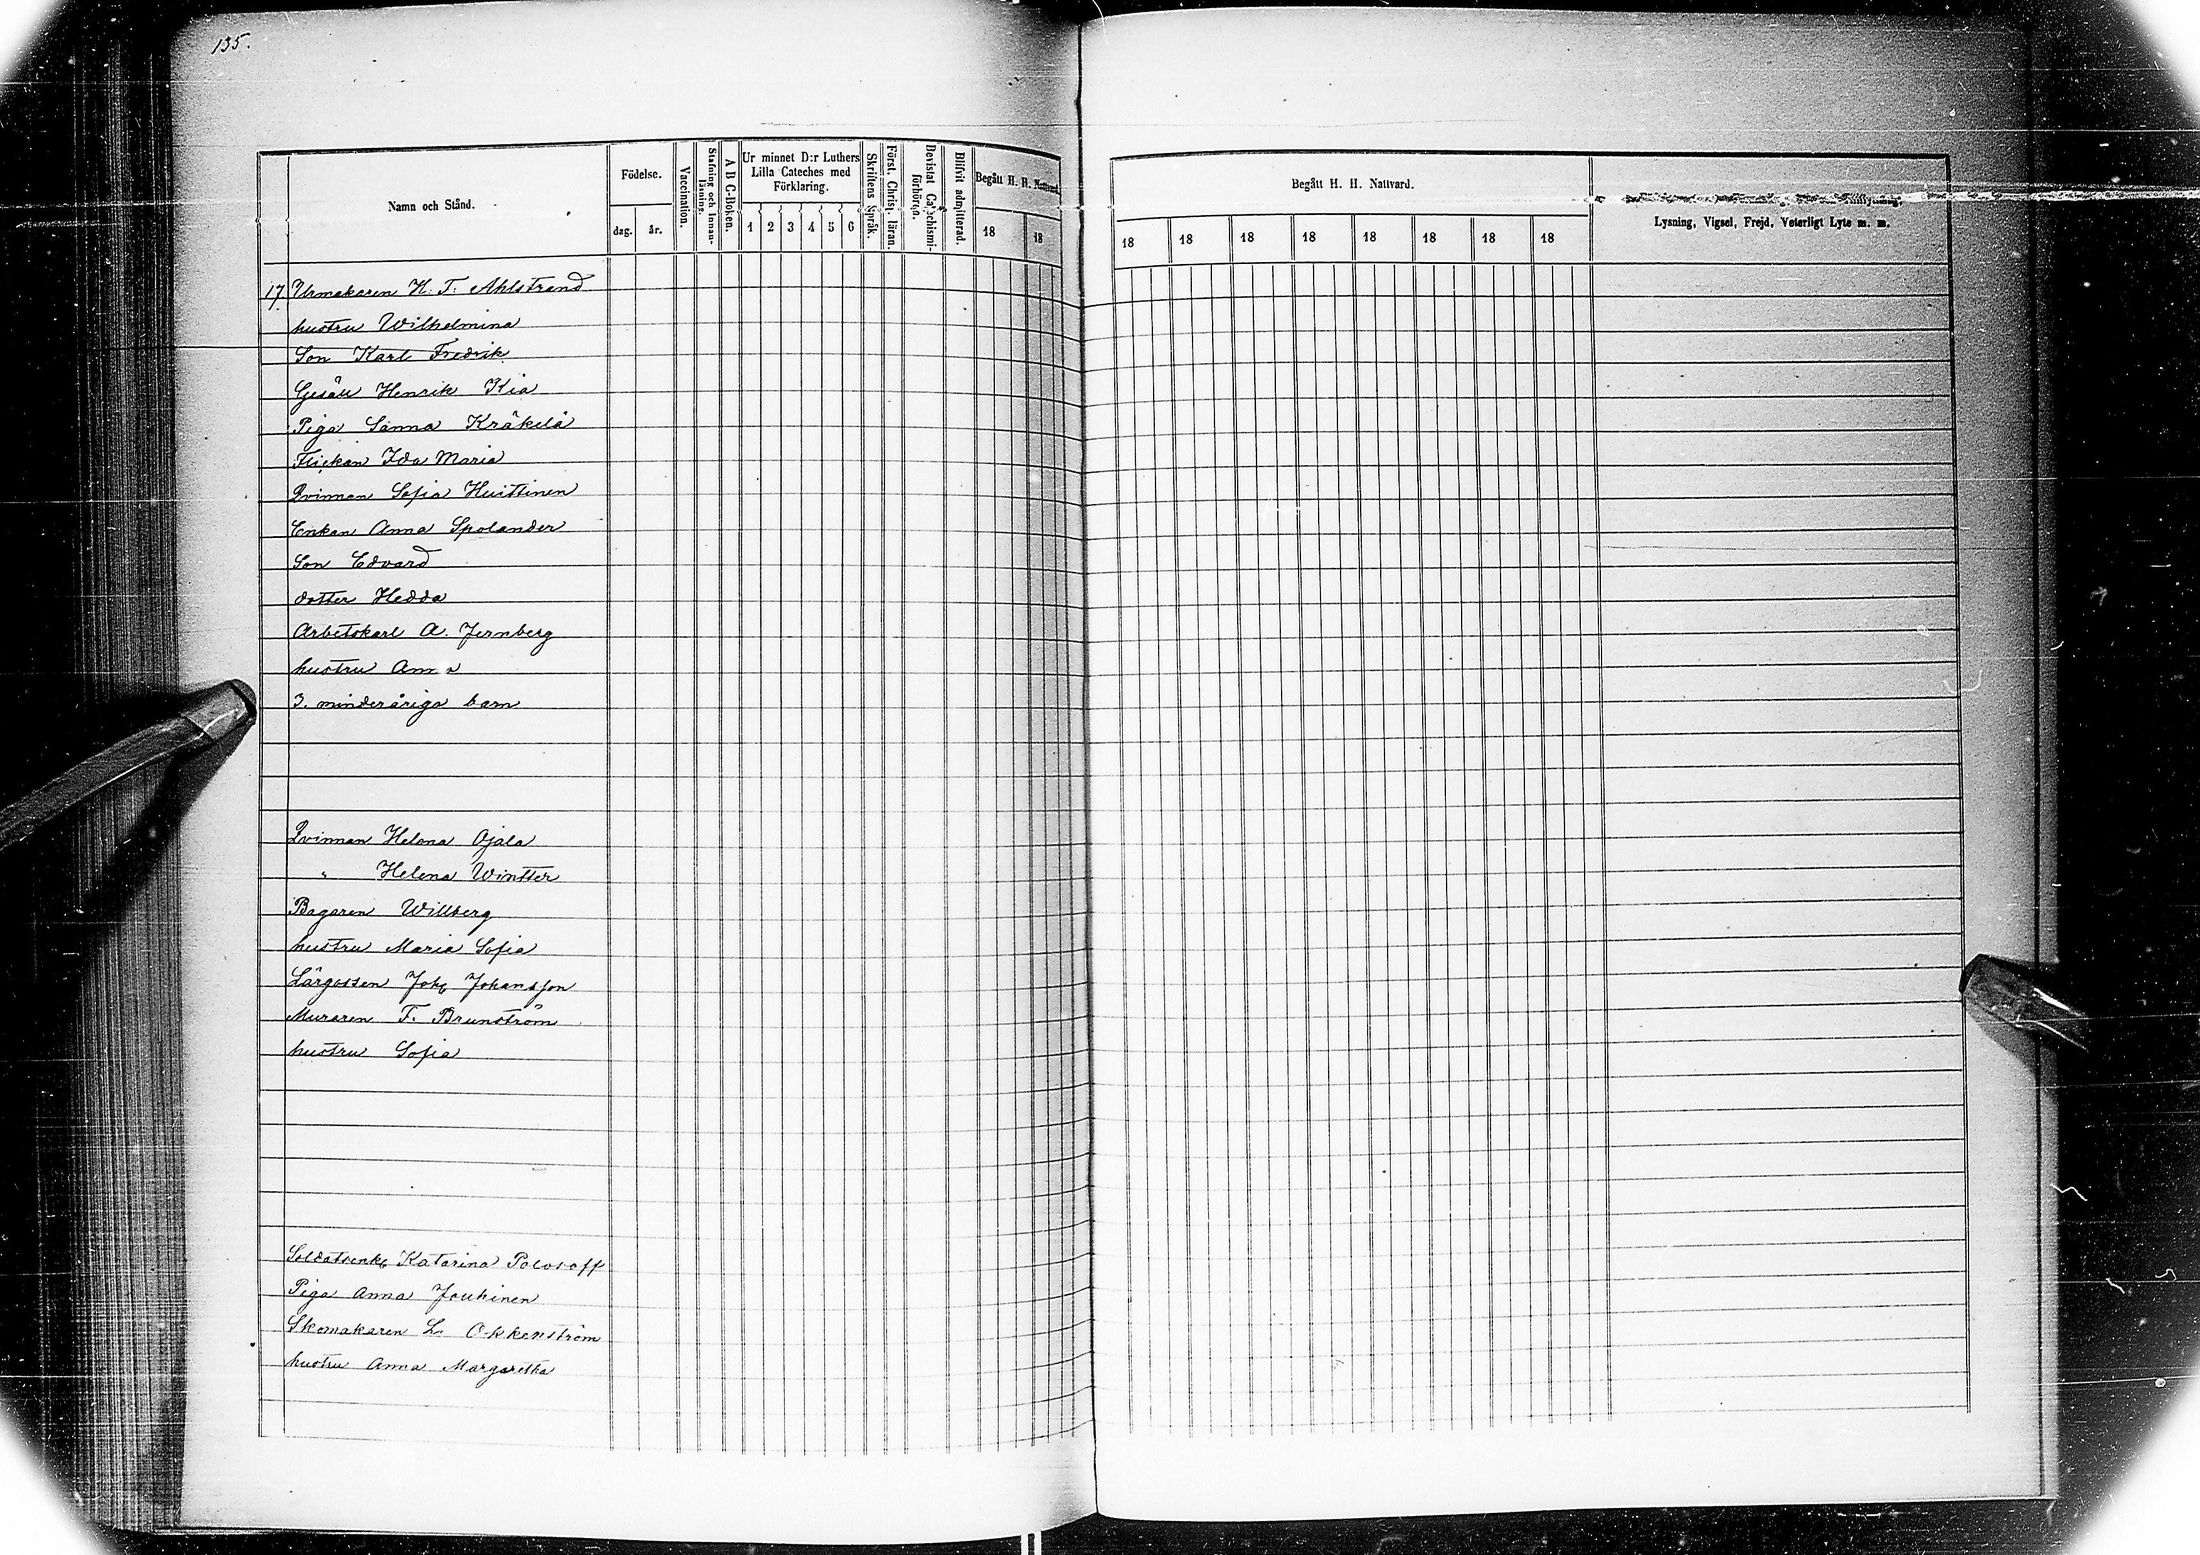 135.
Namn och Stånd.
Födelse.
dag. år.
Vaccination.
Stafning och Innan-
läsning.
A B C-Boken.
Ur minnet D:r Luthers
Lilla Cateches med
Förklaring.
1 2 3 4 5 6
Skriftens Språk.
Först. Christ. läran.
Bevistat Catechismi-
förhören.
Blifvit admitterad.
Begått H. H. Nattvard.
18 18
Begått H. H. Nattvard.
18 18 18 18 18 18 18 18
Lysning, Vigsel, Frejd, Veterligt Lyte m. m.
17. Urmakaren H. T. Ahlstrand
hustru Wilhelmina
Son Karl Fredrik
Gesäll Henrik Kia
Piga Sanna Kräkelä
Flickan Ida Maria
Qvinnan Sofia Huittinen
Enkan Anna Spolander
Son Edvard
dotter Hedda
Arbetskarl A. Jernberg
hustru Anna
3. minderåriga barn
Qvinnan Helena Ojala
" Helena Wintter
Bagaren Willberg
hustru Maria Sofia
Lärgossen Joh Johansson
Muraren F. Brunström
hustru Sofia
Soldatenk Katarina Polosoff
Piga Anna Jouhinen
Skomakaren L. Okkenström
hustru Anna Margaretha